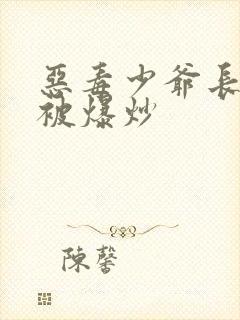 惡毒少爺長
被爆炒
陳馨